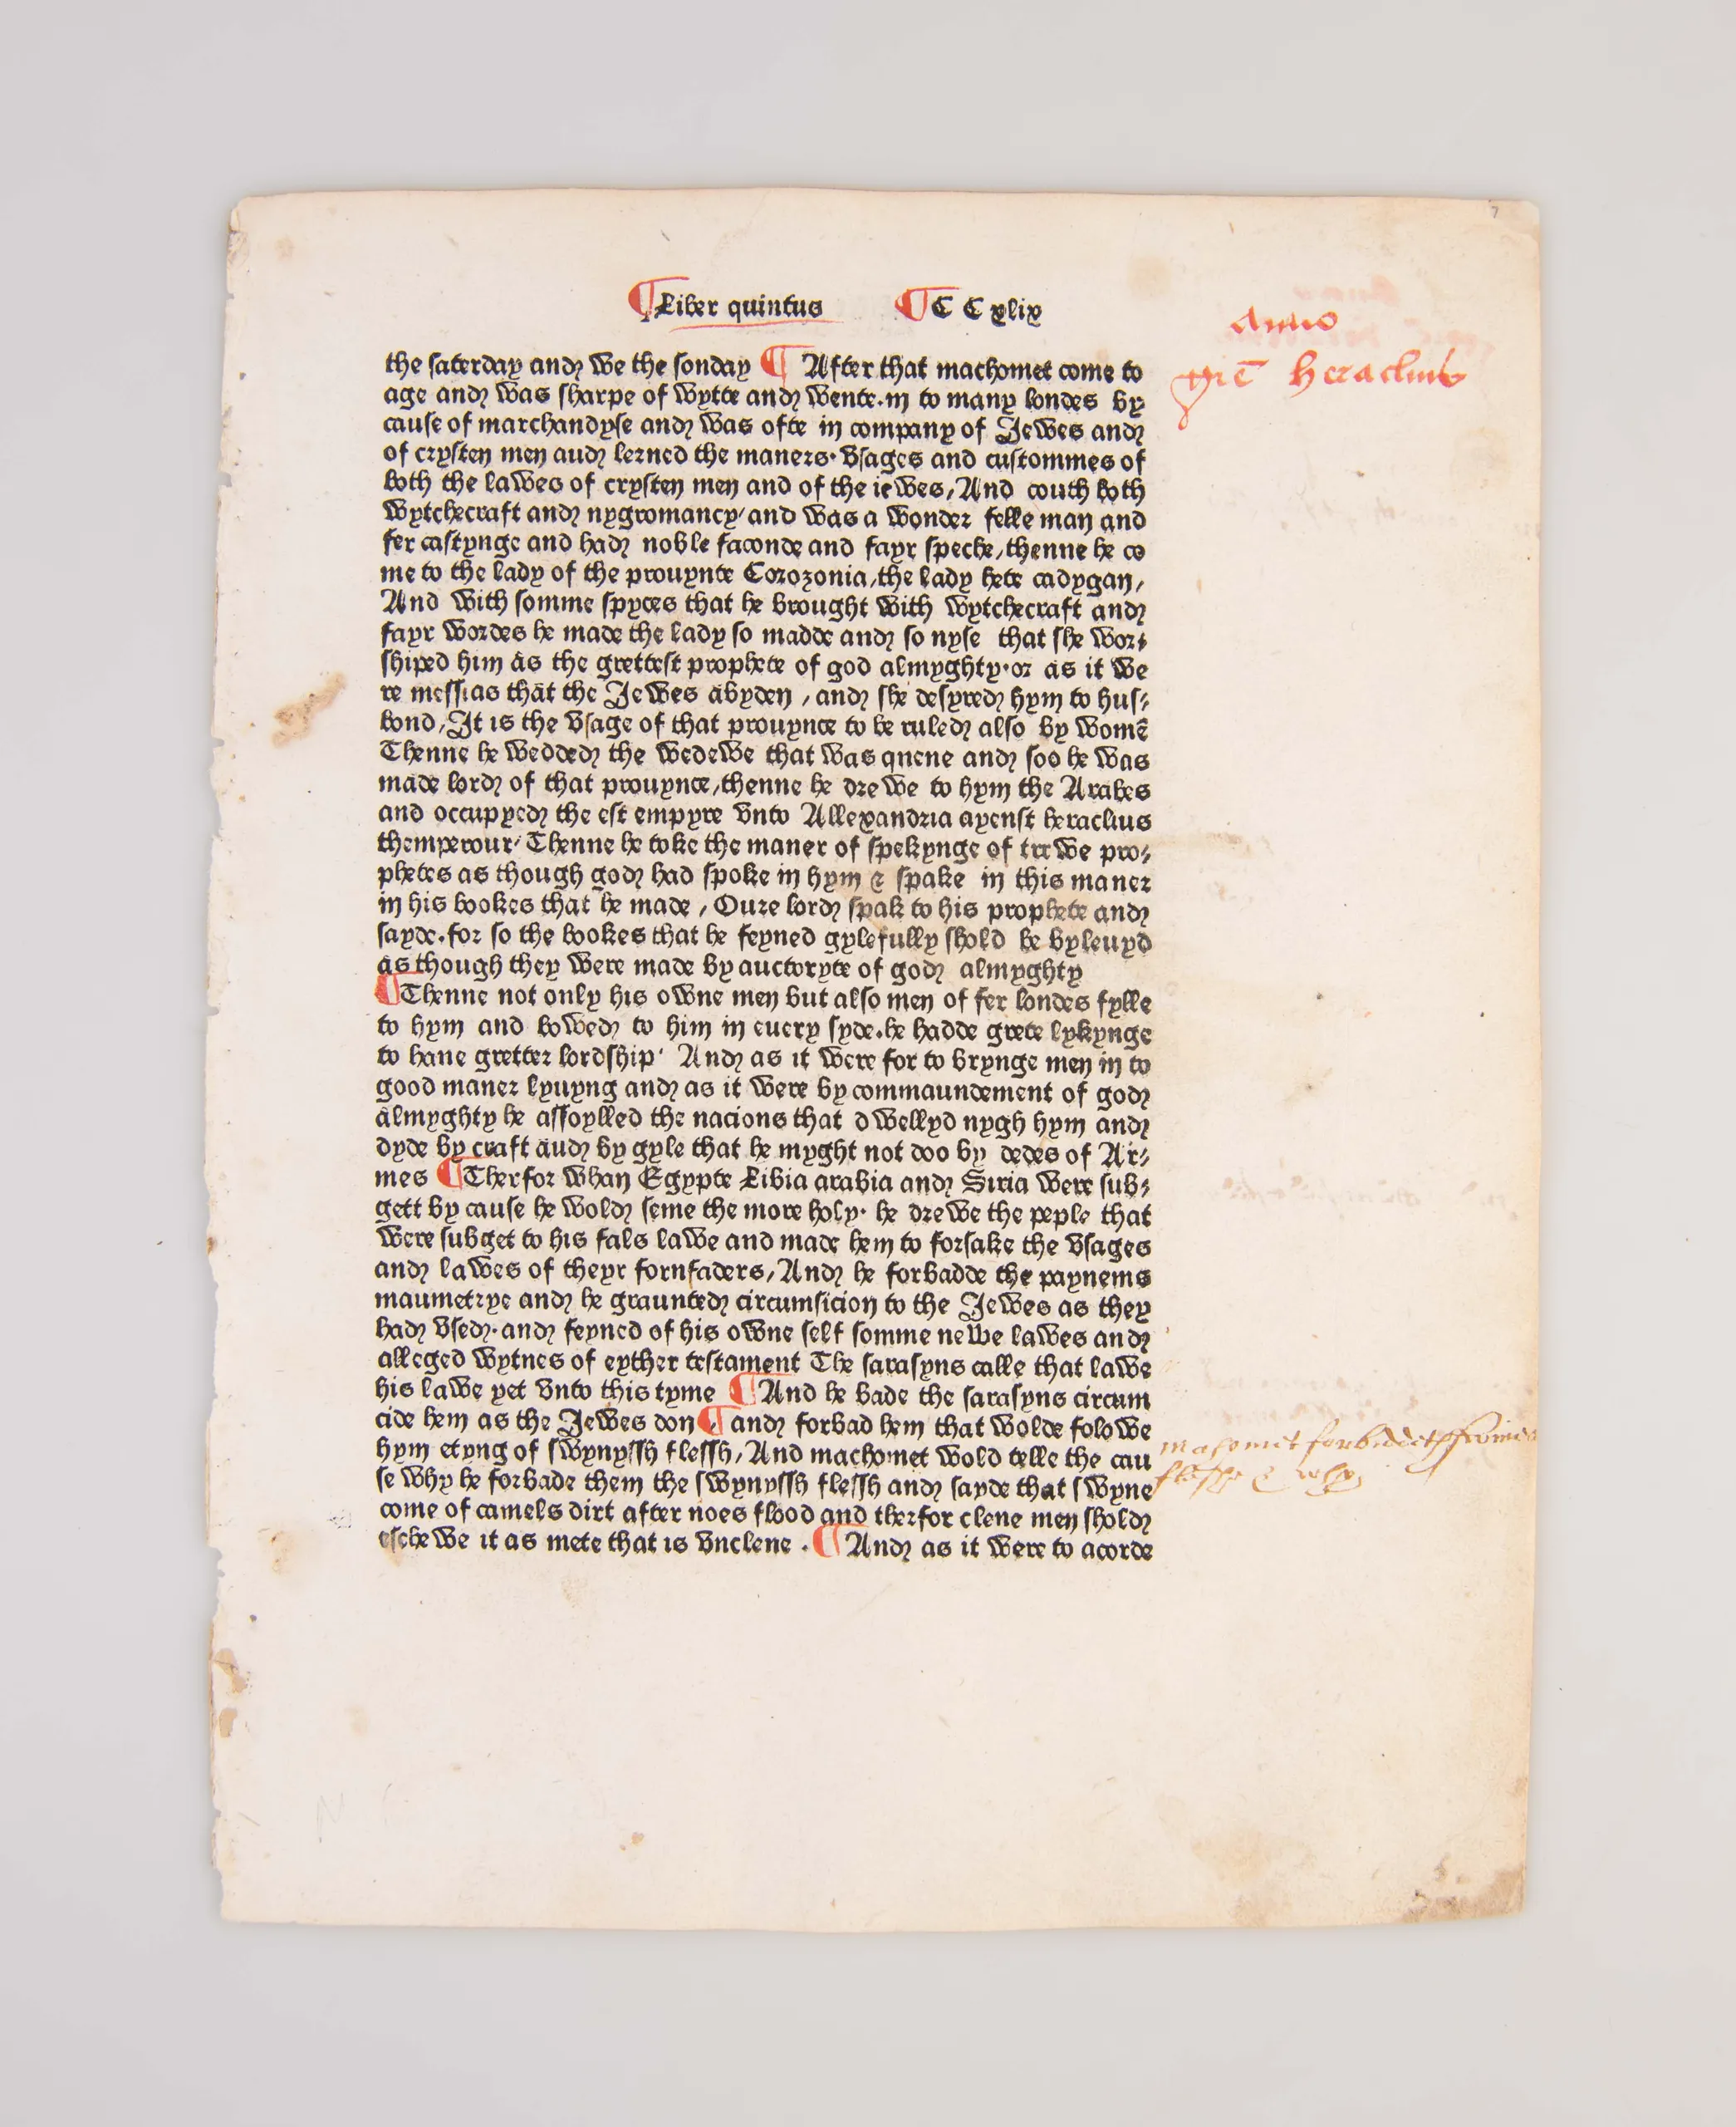 ¶Liber quintus ¶C C xlix
7
Anno
gre᷒ heraclius
the saterday and we the sonday ¶ After that machomet come to
age and was sharpe of wytte and wente.in to many londes by
cause of marchandyse and was ofte in company of Jewes and
of crysten men aud lerned the maners· vsages and custommes of
both the lawes of crysten men and of the iewes, And couth both
wytchecraft and nygromancy/ and was a wonder felle man and
fer castynge and had noble faconde and fayr speche, thenne he co
me to the lady of the prouynte Corozonia, the lady hete cadygan,
And with somme spyces that he brought with wytchecraft and
fayr wordes he made the lady so madde and so nyse that she wor⸗
shiped him as the grettest prophete of god almyghty· or as it we
re messias that the Jewes abyden , and she desyred hym to hus⸗
bond, It is the vsage of that prouynce to be ruled also by womē
Thenne he wedded the wedewe that was quene and soo he was
made lord of that prouynce, thenne he drewe to hym the Arabes
and occupyed the est empyre vnto Allexandria ayenst heraclius
themperour· Thenne he toke the maner of spekynge of trewe pro⸗
phetes as though god had spoke in hym & spake in this maner
in his bookes that he made , Oure lord spak to his prophete and
sayde. for so the bookes that he feyned gylefully shold be byleuyd
as though they were made by auctoryte of god almyghty
¶Thenne not only his owne men but also men of fer londes fylle
to hym and bowed to him in euery syde. he hadde grete lykynge
to haue gretter lordship· And as it were for to brynge men in to
good maner lyuyng and as it were by commaundement of god
almyghty he assoylled the nacions that dwellyd nygh hym and
dyde by craft aud by gyle that he myght not doo by dedes of Ar⸗
mes ¶Therfor whan Egypte Libia arabia and Siria were sub⸗
gett by cause he wold seme the more holy· he drewe the peple that
were subget to his fals lawe and made hem to forsake the vsages
and lawes of theyr fornfaders, And he forbadde the paynems
maumetrye and he graunted circumsicion to the Jewes as they
had vsed· and feyned of his owne self somme newe lawes and
alleged wytnes of eyther testament The sarasyns calle that lawe
his lawe yet vnto this tyme ¶And he bade the sarasyns circum
cide hem as the Jewes don ¶ and forbad hem that wolde folowe
hym etyng of swynyssh flessh, And machomet wold telle the cau
se why he forbade them the swynyssh flessh and sayde that swyne
come of camels dirt after noes flood and therfor clene men shold
eschewe it as mete that is vnclene . ¶ And as it were to acorde
mahomet forbiddeth swines
fleshe & why